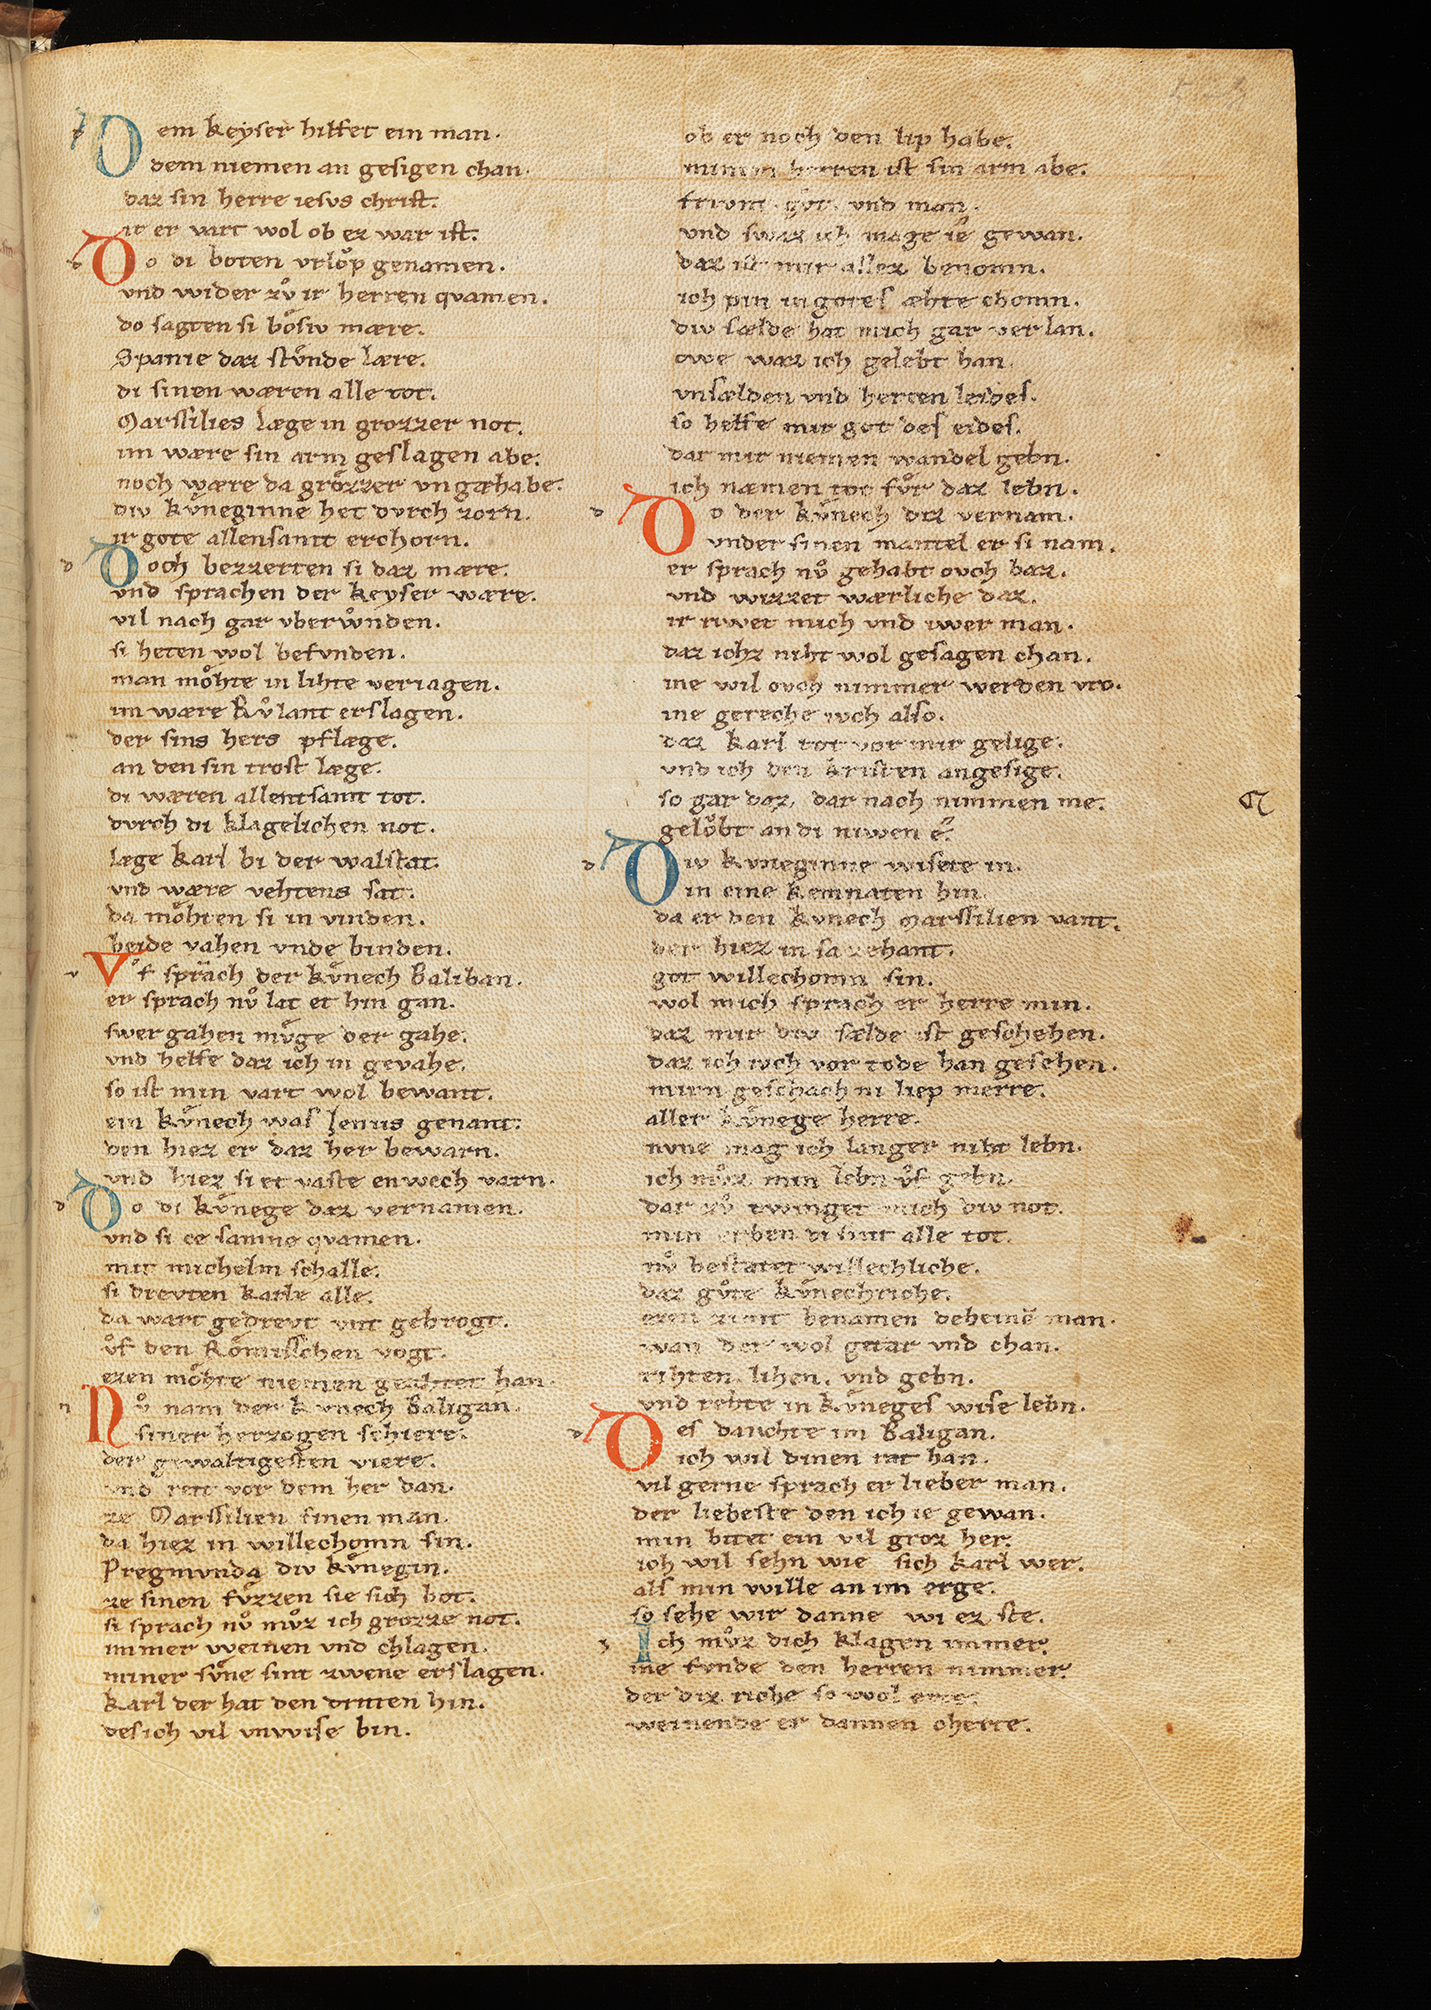 Dem keyser hilfet ein man.
dem niemen an gesigen chan.
daz sin herre iesus christ.
ir er vart wol ob ez war ist.
Do di boten vrloͮp genamen.
vnd wider zvͦ ir herren qvamen.
do sagten si boͤsiv mære.
Spanie daz stvͤnde lære.
di sinen wæren alle tot.
Marssilies læge in grozzer not.
im wære sin arm geslagen abe.
noch wære da groͤzzer vngæhabe.
div kvͤneginne het dvrch zorn.
ir gote allensamt erchorn.
Doch bezzerten si daz mære.
vnd sprachen der keyser wære.
vil nach gar vberwͦnden.
si heten wol befvnden.
man moͤhte in lihte veriagen.
im wære Rvͦlant erslagen.
der sins hers pflæge.
an den sin trost læge.
di wæren allentsamt tot.
dvrch di klagelichen not.
læge karl bi der walstat.
vnd wære vehtens sat.
da moͤhten si in vinden.
beide vahen vnde binden.
Vͦf sprach der kvͤnech Baliban.
er sprach nvͦ lat et hin gan.
swer gahen mvͤge der gahe.
vnd helfe daz ich in gevahe.
so ist min vart wol bewant.
ein kvͤnech was Jenius genant.
den hiez er daz her bewarn.
vnd hiez si et vaste enwech varn.
Do di kvͤnege daz vernamen.
vnd si ce samne qvamen.
mit michelm schalle.
si drevten karle alle.
da wart gedrevt vnt gebrogt.
vͦf den Roͤmisschen vogt.
ezen moͤhte niemen geahtet han.
Nvͦ nam der kvnech Baligan.
siner herzogen schiere.
der gewaltigesten viere.
vnd reit vor dem her dan.
ze Marssilien sinen man.
da hiez in willechomn sin.
Pregmvnda div kvͤnegin.
ze sinen fvͤzzen sie sich bot.
si sprach nvͦ mvͦz ich grozze not.
immer weinen vnd chlagen.
miner svͤne sint zwene erslagen.
karl der hat den dritten hin.
des ich vil vnwise bin.
ob er noch den lip habe.
minem herren ist sin arm abe.
frivnt. got. vnd man.
vnd swaz ich mage ie gewan.
daz ist mir allez benomn.
ich pin in gotes æhte chomn.
div sælde hat mich gar verlan.
owe waz ich gelebt han.
vnsælden vnd herten leides.
so helfe mir got des eides.
dar mir niemen wandel gebn.
ich næmen tot fvͤr daz lebn.
Do der kvͤnech diz vernam.
vnder sinen mantel er si nam.
er sprach nvͦ gehabt ovch baz.
vnd wizzet wærliche daz.
ir riwet mich vnd iwer man.
daz ichz niht wol gesagen chan.
ine wil ovch nimmer werden vro.
ine gereche iwch also.
daz karl tot vor mir gelige.
vnd ich den kristen angesige.
so gar daz, dar nach nimmen me.
geloͮbt an di niwen e.
Div kvneginne wisete in.
in eine kemnaten hin.
da er den kvnech Marssilien vant.
der hiez in sa zehant.
got willechomn sin.
wol mich sprach er herre min.
daz mir div sælde ist geschehen.
daz ich iwch vor tode han gesehen.
mirn geschach ni liep merre.
aller kvͤnege herre.
nvne mag ich langer niht lebn.
ich mvͦz min lebn vͦf gebn.
dar zvͦ twinget mich div not.
min erben di sint alle tot.
nvͦ bestatet willechliche.
daz gvͦte kvͤnechriche.
ezen zimt benamen deheinē man.
wan der wol getar vnd chan.
rihten. lihen. vnd gebn.
vnd rehte in kvͤneges wise lebn.
Des dauchte im Baligan.
ich wil dinen rat han.
vil gerne sprach er lieber man.
der liebeste den ich ie gewan.
min bitet ein vil groz her.
ich wil sehn wie sich karl wer.
als min wille an im erge.
so sehe wir danne wi ez ste.
Ich mvͦz dich klagen immer.
ine fvnde den herren nimmer.
der diz riche so wol erte.
weinende er dannen cherte.